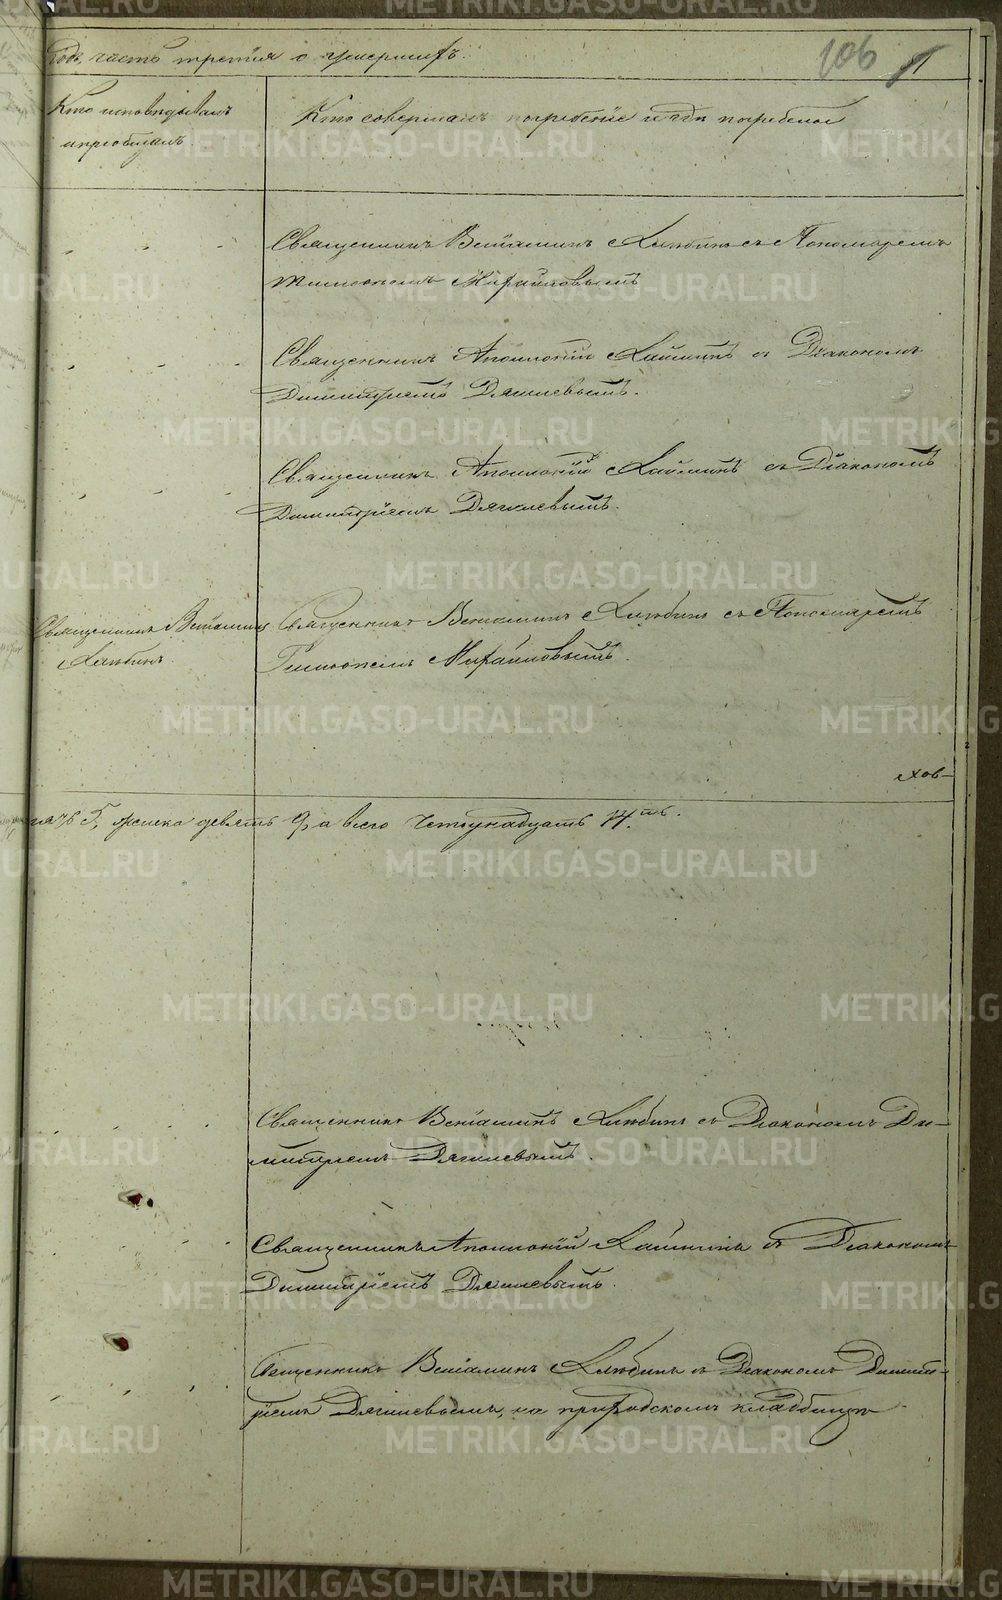 годъ, часть третія о умершихъ.
106
Кто исповѣдывалъ
и пріобщалъ.
Кто совершалъ погребеніе и гдѣ погребены
Священникъ Веніаминъ съ Пономаремъ
Тимофеемъ Михайловымъ
Священникъ Аполлоній съ Діакономъ
Димитріемъ Дягилевымъ.
Священникъ Аполлоній съ Діакономъ
Димитріемъ Дягилевымъ.
Священникъ Веніаминъ
Священникъ Веніаминъ съ Пономаремъ
Тимофеемъ Михайловымъ.
5, женска девять 9, а всего четырнадцать 14.ть.
Священникъ Веніаминъ съ Діакономъ Ди-
митріемъ Дягилевымъ.
Священникъ Аполлоній съ Діакономъ
Димитріемъ Дягилевымъ.
Священникъ Веніаминъ съ Діакономъ Димит-
ріемъ Дягилевымъ, на приходскомъ кладбищѣ.
METRIKI.GASO-URAL.RU